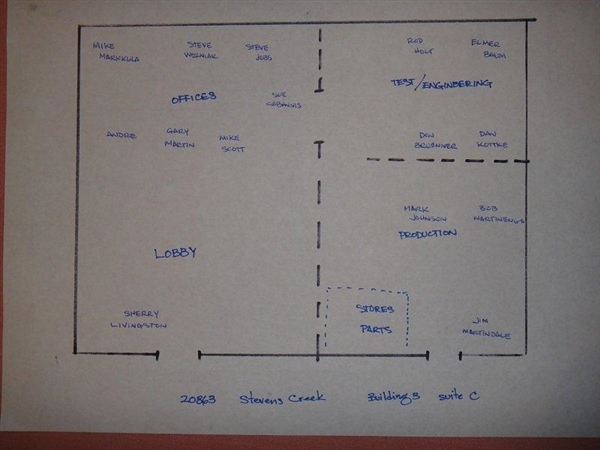 MIKE
MARKKULA
STEVE
WOZNIAK
STEVE
JOBS
SUE
CABANNIS
OFFICES
ANDRE
GARY
MARTIN
MIKE
SCOTT
LOBBY
SHERRY
LIVINGSTON
ROD
HOLT
ELMER
BAUM
TEST/ENGINEERING
DON
BRUENNER
DAN
KOTTKE
MARK
JOHNSON
BOB
MARTINENGO
PRODUCTION
STORES
PARTS
JIM
MARTINDALE
20863 Stevens Creek Building 3 suite C